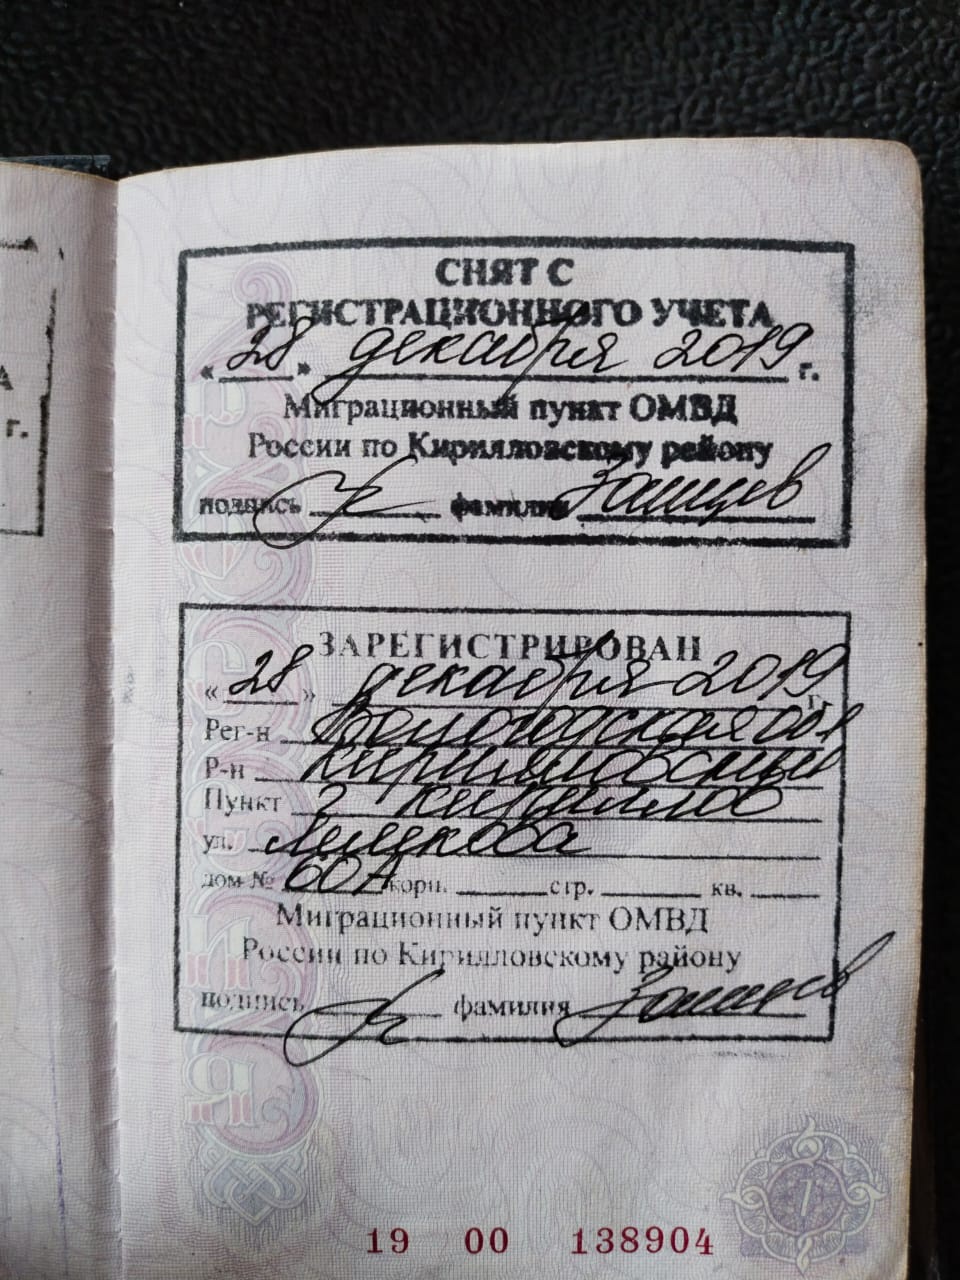 А
г.
СНЯТ С
РЕГИСТРАЦИОННОГО УЧЕТА
«28» декабря 2019 г.
Миграционный пункт ОМВД
России по Кирилловскому району
подпись фамилия
ЗАРЕГИСТРИРОВАН
«28» декабря 2019 г.
Рег-н Вологодская обл
Р-н Кирилловский
Пункт г Кириллов
ул.
дом № 60А корп. стр. кв.
Миграционный пункт ОМВД
России по Кирилловскому району
подпись фамилия
7
19 00 138904